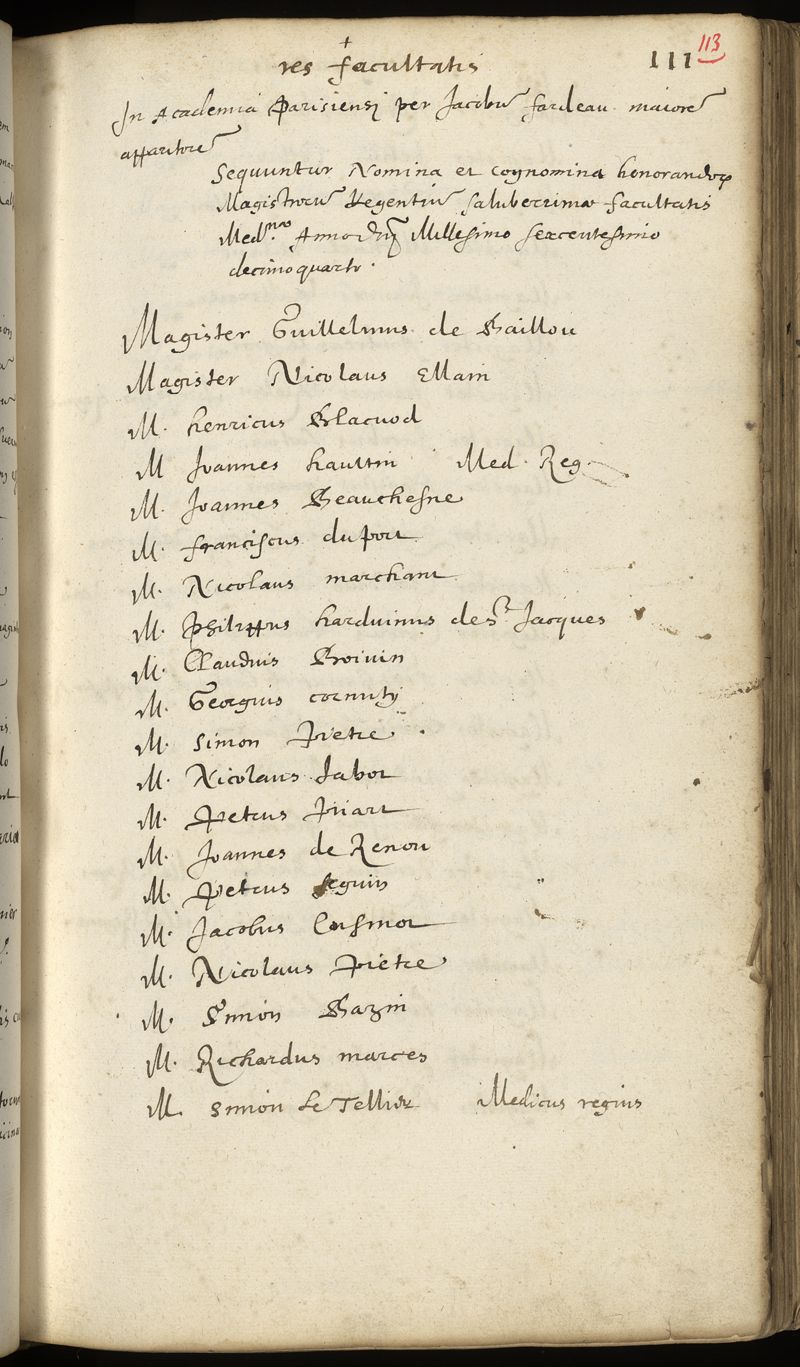 113
111
res facultatis
In Academia Parisiensi per Jacobū fardeau maiorē
apparitorē
Sequuntur Nomina et cognomina honorandoꝝ
Magistrorū Regentiū saluberrimæ facultatis
Anno Millesimo sexcentesimo
decimoquarto.
Magister Guillelmus de Baillou
Magister Nicolaus Ellain
M. henricus Blacuod
M Joannes hautin Med. Reg.
M. Joannes Beauchesne
M. franciscus duport
M. Nicolaus marchant
M. Philippus harduinus de St Jacques
M. Claudius Boivin
M. Georgius cornuty
M. Simon Pietre.
M. Nicolaus Jabot
M. Petrus Pijart
M. Joannes de Renou
M. Petrus seguin
M. Jacobus Cousinot
M. Nicolaus Pietre
M. Simon Bazin
M. Richardus
M. Simon Le Tellier Medicus regius